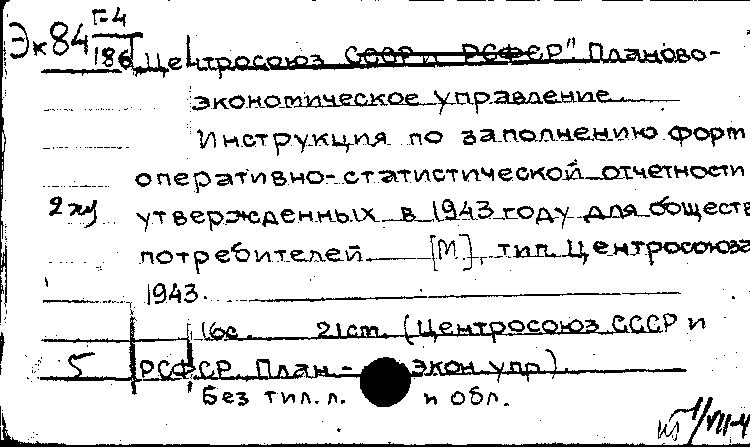 Эк84 Г-4/186
"Центросоюз СССР и РСФСР" Планово-
экономическое управление.
Инструкция по заполнению форт
оперативно-статистической отчетности
2 экз
утвержденных в 1943 году для обществ
потребителей [М], тип. Центросоюза
1943.
16с. 21см. (Центросоюз СССР и
5 РСФСР. План.- Экон упр).
Без тил. л. и обл.